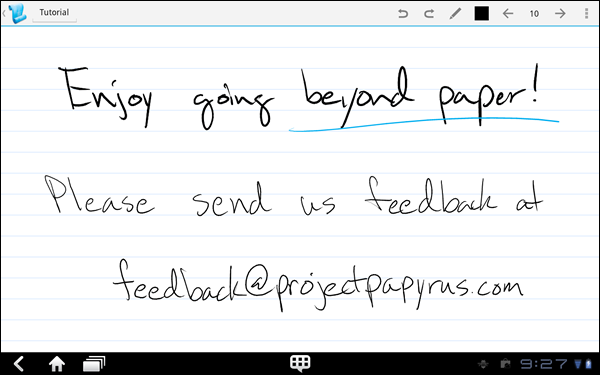 Tutorial
10
Enjoy going beyond paper!
Please send us feedback at
feedback@projectpapyrus.com
9:27